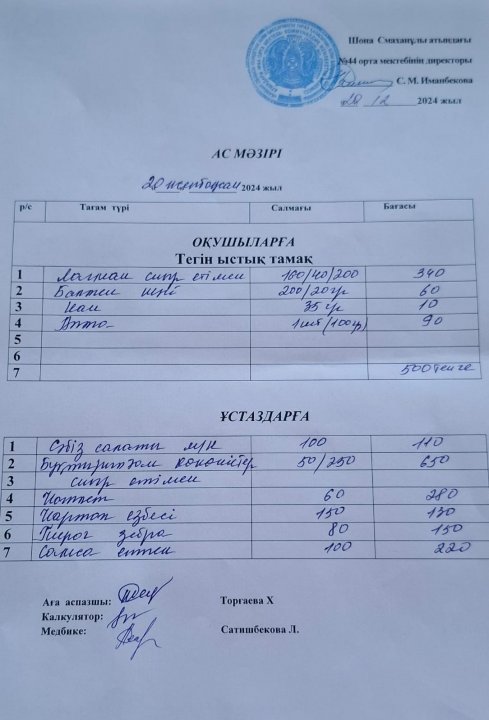 Шона Смаханұлы атындағы
№44 орта мектебінің директоры
С. М. Иманбекова
2024 жыл
АС МӘЗІРІ
20 желтоқсан 2024 жыл
р/с Тағам түрі Салмағы Бағасы
ОҚУШЫЛАРҒА
Тегін ыстық тамақ
1 Лагман сиыр етімен 160/40/200 340
2 Балмен шәй 200/20гр 60
3 Нан 35гр 10
4 Алма 1шт/(100гр) 90
5
6
7 500 теңге
ҰСТАЗДАРҒА
1 Сәбіз салаты 100 110
2 50/250 650
3 сиыр етімен
4 Котлет 60 280
5 Картоп езбесі 150 130
6 Пирог зебра 80 150
7 Самса етпен 100 220
Аға аспазшы: Торғаева Х
Калкулятор:
Медбике: Сатишбекова Л.